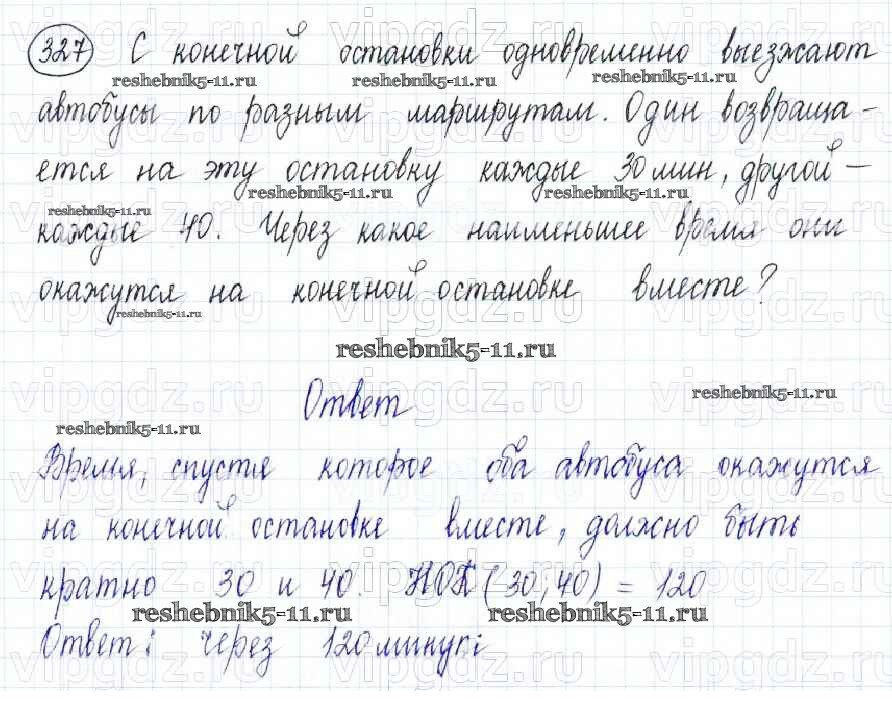 327 С конечной остановки одновременно выезжают
reshebnik5-11.ru reshebnik5-11.ru reshebnik5-11.ru
автобусы по разным маршрутам. Один возвраща-
ется на эту остановку каждые 30 мин, другой –
reshebnik5-11.ru reshebnik5-11.ru reshebnik5-11.ru
каждые 40. Через какое наименьшее время они
окажутся на конечной остановке вместе?
reshebnik5-11.ru
reshebnik5-11.ru
Ответ
reshebnik5-11.ru
reshebnik5-11.ru
Время, спустя которое оба автобуса окажутся
на конечной остановке вместе, должно быть
кратно 30 и 40. НОК (30; 40) = 120
reshebnik5-11.ru reshebnik5-11.ru
Ответ: через 120 минут
vipgdz.ru